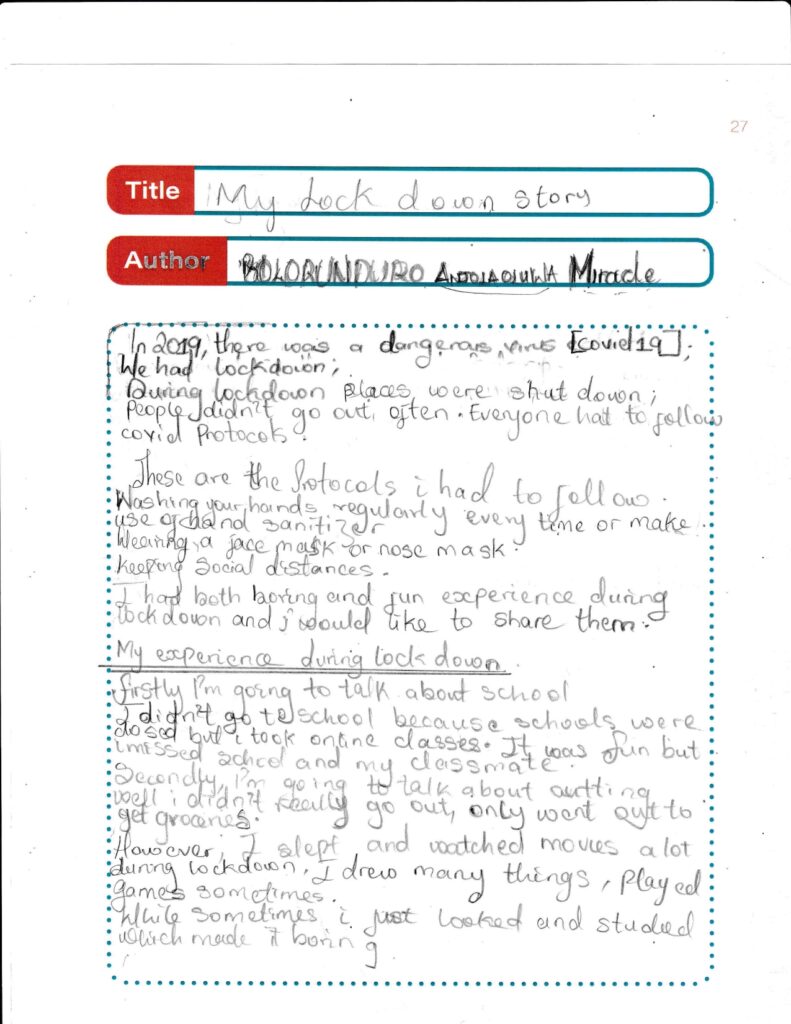 27
Title My Lock down story
Author BOLORUNDURO Miracle
In 2019, there was a dangerous virus [covid19];
We had lockdown;
During lockdown places were shut down;
people didn't go out, often. Everyone hat to follow
covid Protocols.
These are the Protocols i had to follow.
Washing your hands regularly every time or make
use of hand sanitizer
Wearing a face mask or nose mask.
keeping social distances.
I had both boring and fun experience during
lockdown and i would like to share them.
My experience during lock down.
firstly I'm going to talk about school
I didn't go to school because schools were
closed but i took online classes. It was fun but
i missed school and my classmate.
Secondly, I'm going to talk about outting
well i didn't really go out, only went out to
get groceries.
However, I slept and watched movies a lot
during lockdown, I drew many things, Played
games sometimes.
While sometimes i just looked and studied
which made it boring